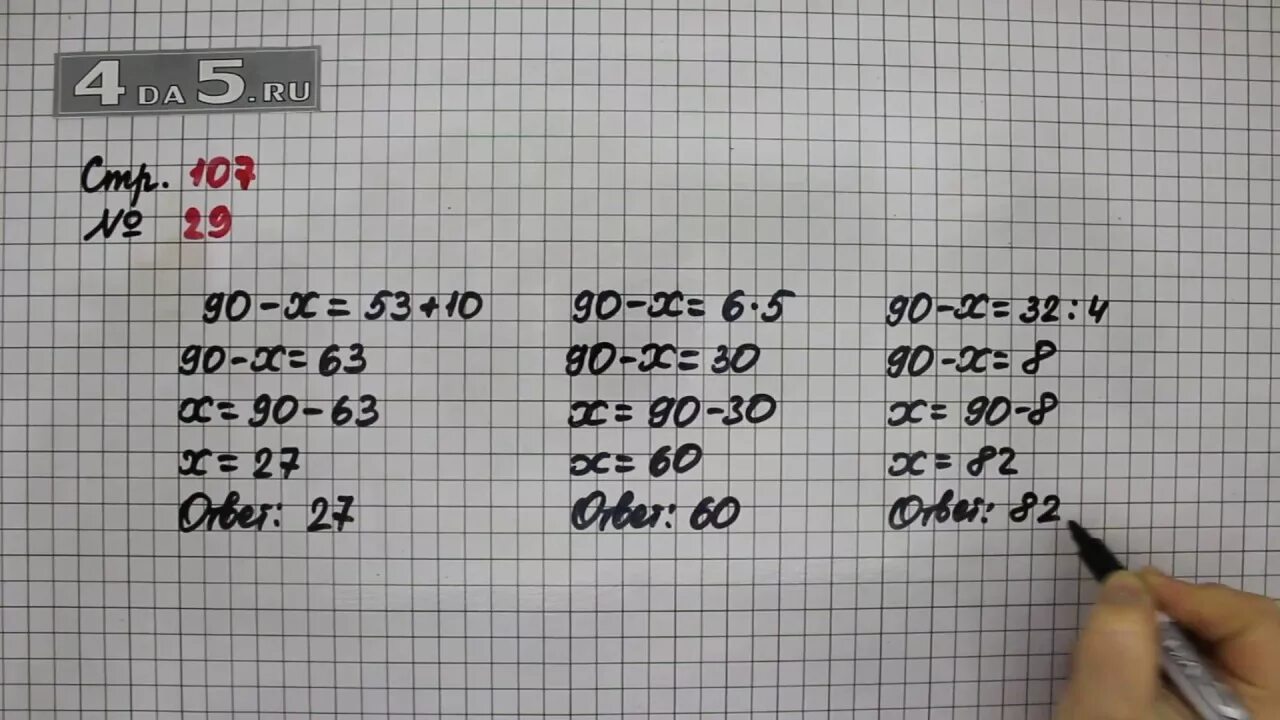 4 DA 5.RU
Стр. 107
№ 29
90-x=53+10
90-x=63
x=90-63
x=27
Ответ: 27
90-x=6·5
90-x=30
x=90-30
x=60
Ответ: 60
90-x=32:4
90-x=8
x=90-8
x=82
Ответ: 82